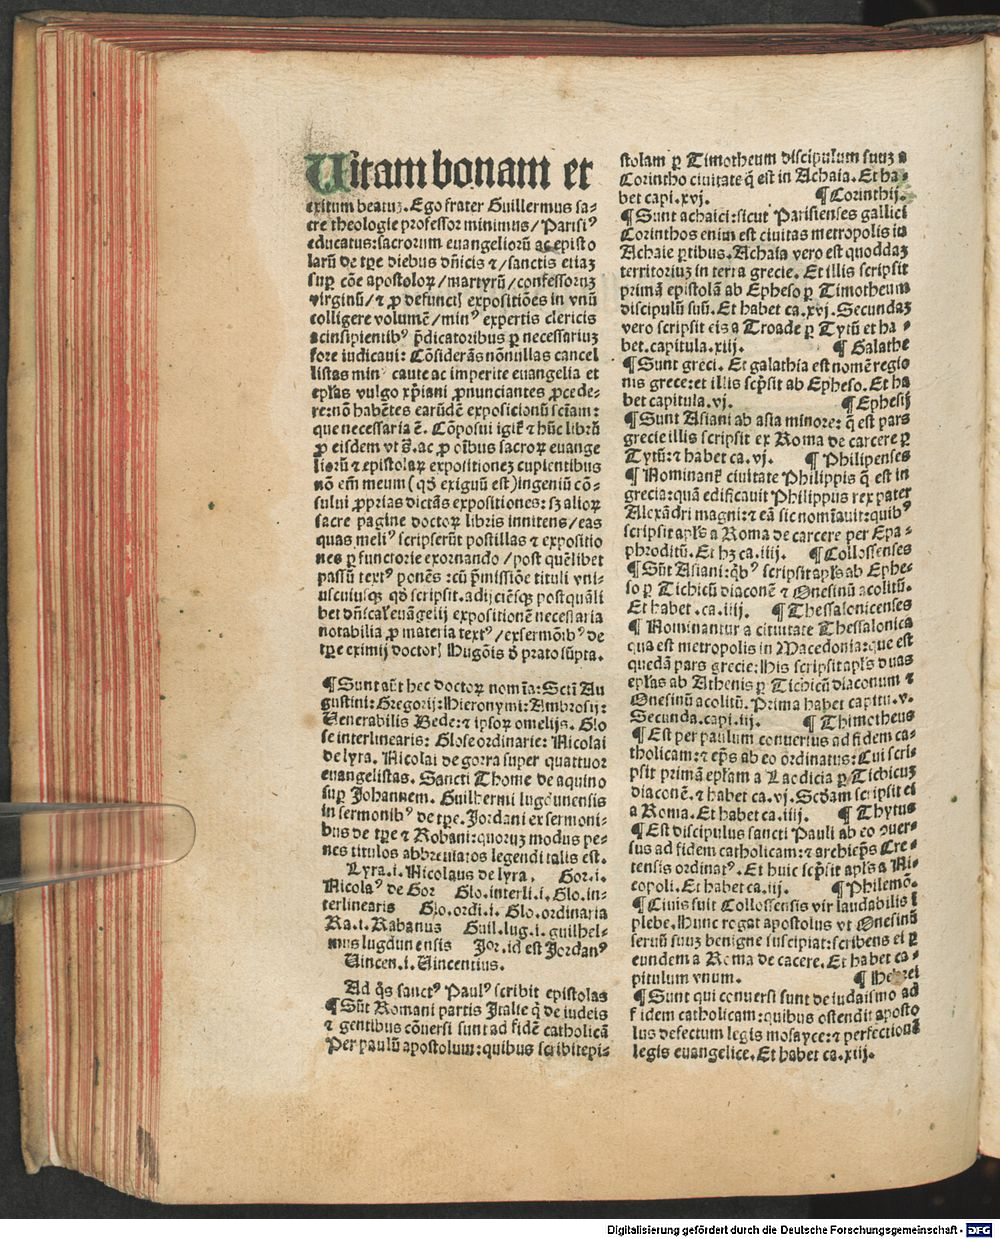 Uitam bonam et
exitum beatuꝫ. Ego frater Guillermus sa⸗
cre theologie professor minimus / Parisiꝰ
educatus: sacrorum euangeliorū ac episto
larū de tꝑe diebus dn̄icis ⁊ / sanctis etiaꝫ
suꝑ cōe apostoloꝝ / martyrū / confessoruꝫ
virginū / ⁊ ꝓ defunctꝭ expositiōes in vnū
colligere volumē / minꝰ expertis clericis
ac insipientibꝰ p̄dicatoribus ꝑ necessariuꝫ
fore iudicaui: Cōsiderās nōnullas cancel
listas minꝰ caute ac imperite euangelia et
ep̄las vulgo xp̄iani ꝓnunciantes ꝓcede⸗
re: nō habētes earūdē exposicionū sciām:
que necessaria ē. Cōposui igiꝉ ⁊ hūc librū
ꝓ eisdem vt s̄. ac ꝓ oībus sacroꝝ euange
liorū ⁊ epistolaꝝ expositionez cupientibus
nō em̄ meum (qď exiguū est) ingeniū cō⸗
sului ꝓprias dictās expositiones: sꝫ alioꝝ
sacre pagine doctoꝝ libris innitens / eas
quas meliꝰ scripserūt postillas ⁊ expositio
nes ꝑfunctorie exornando / post quēlibet
passū textꝰ ponēs: cū p̄missiōe tituli vni⸗
uscuiusqꝫ qď scripsit. adijciēsqꝫ post quāli
bet dn̄icaꝉ euāgelij expositionē necessaria
notabilia ꝓ materia textꝰ / ex sermōibꝰ de
tꝑe eximij doctorꝭ Hugōis ď prato sūpta.
¶ Sunt aūt hec doctoꝝ nomīa: Scti Au
gustini: Gregorij: Hieronymi: Ambrosij:
Uenerabilis Bede: ⁊ ipsoꝝ omelijs. Glo
se interlinearis: Glose ordinarie: Nicolai
de lyra. Nicolai de gorra super quattuor
euangelistas. Sancti Thome de aquino
suꝑ Johannem. Guilhermi lugdunensis
in sermonibꝰ de tꝑe. Jordani ex sermoni⸗
bus de tꝑe ⁊ Robani: quoruꝫ modus pe⸗
nes titulos abbreuiatos legendi talis est.
Lyra .i. Nicolaus de lyra. Gor .i.
Nicolaꝰ de Gor Glo. interli .i. Glo. in⸗
terlinearis Glo. ordi .i. Glo. ordinaria
Ra .i. Rabanus Guil. lug .i. guilhel⸗
mus lugdunensis Jor. id est Jordanꝰ
Uincen .i. Uincentius.
Ad q̄s sanctꝰ Paulꝰ scribit epistolas
¶ Sūt Romani partis Italie q̇ de iudeis
⁊ gentibus cōuersi sunt ad fidē catholicā
Per paulū apostolum: quibus scribit epi⸗
stolam ꝑ Timotheum discipulum suuꝫ a
Corintho ciuitate q̄ est in Achaia. Et ha⸗
bet capi. xvj. ¶ Corinthij.
¶ Sunt achaici: sicut Parisienses gallici
Corinthos enim est ciuitas metropolis in
Achaie ꝑtibus. Achaia vero est quoddaꝫ
territoriuꝫ in terra grecie. Et illis scripsit
primā epistolā ab Epheso ꝑ Timotheum
discipulū suū. Et habet ca. xvj. Secundaꝫ
vero scripsit eis a Troade ꝑ Tytū et ha⸗
bet. capitula. xiij. ¶ Galathe
¶ Sunt greci. Et galathia est nomē regio
nis grece: et illis scp̄sit ab Epheso. Et ha
bet capitula. vj. ¶ Ephesij
¶ Sunt Asiani ab asia minore: q̄ est pars
grecie illis scripsit ex Roma de carcere ꝑ
Tytū: ⁊ habet ca. vj. ¶ Philipenses
¶ Nominanꝉ ciuitate Philippis q̄ est in
grecia: quā edificauit Philippus rex pater
Alexādri magni: ⁊ eā sic nomīauit: quibꝰ
scripsit apl̄s a Roma de carcere per Epa⸗
phroditū. Et hꝫ ca. iiij. ¶ Collossenses
¶ Sūt Asiani: qb̄ꝰ scripsit apl̄s ab Ephe⸗
so ꝑ Tichicū diaconē ⁊ Onesinū acolitū.
Et habet .ca. iiij. ¶ Thessalonicenses
¶ Nominantur a cituitate Thessalonica
qua est metropolis in Macedonia: que est
quedā pars grecie: His scripsit apl̄s duas
ep̄las ab Athenis ꝑ Tichicū diaconum ⁊
Onesinū acolitū. Prima habet capitu. v.
Secunda. capi. iij. ¶ Thimotheus
¶ Est per paulum conuersus ad fidem ca⸗
tholicam: ⁊ ep̄s ab eo ordinatus: Cui scri⸗
psit primā ep̄lam a Laodicia ꝑ Tichicuꝫ
diaconē. ⁊ habet ca. vj. Scďam scripsit ei
a Roma. Et habet ca. iiij. ¶ Thytus
¶ Est discipulus sancti Pauli ab eo ↄuer⸗
sus ad fidem catholicam: ⁊ archiep̄s Cre⸗
tensis ordinatꝰ. Et huic scp̄sit apl̄s a Ni⸗
copoli. Et habet ca. iij. ¶ Philemō.
¶ Ciuis fuit Collossensis vir laudabilis ī
plebe. Hunc rogat apostolus vt Onesinū
seruū suuꝫ benigne suscipiat: scribens ei ꝑ
eundem a Roma de cacere. Et habet ca⸗
pitulum vnum. ¶ Hebrei
¶ Sunt qui conuersi sunt de iudaismo ad
fidem catholicam: quibus ostendit aposto
lus defectum legis mosayce: ⁊ perfectionē
legis euangelice. Et habet ca. xiij.
Digitalisierung gefördert durch die Deutsche Forschungsgemeinschaft - DFG